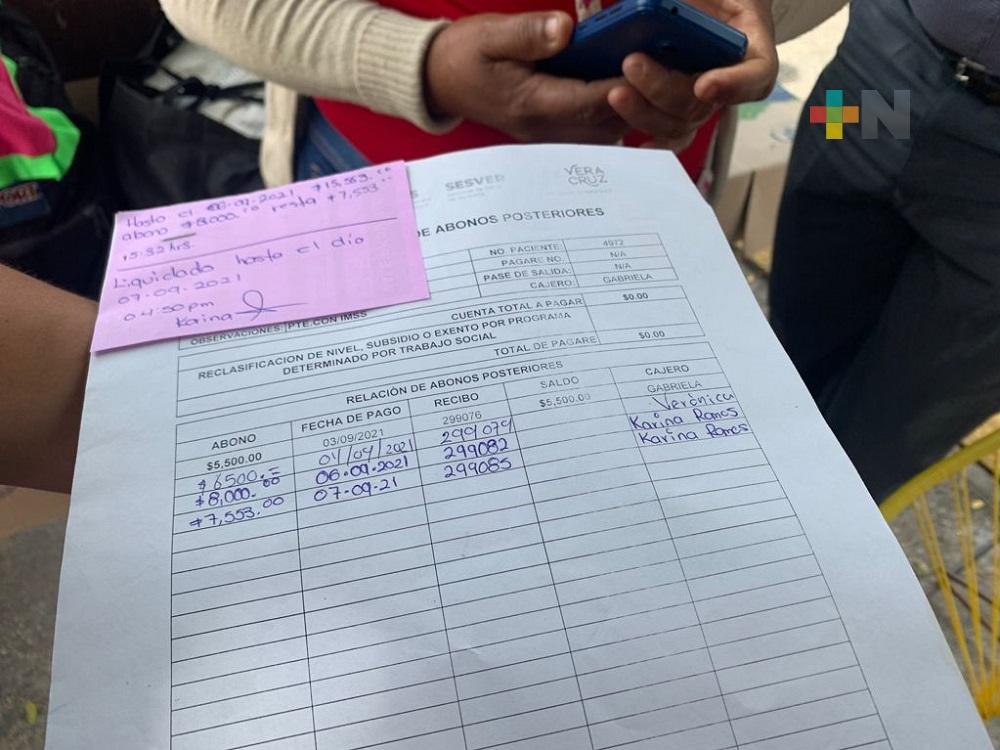 +N
SESVER
VERA
CRUZ
Hasta el 06-09-2021 $15,553.00
abono $8,000.00 resta $7,553.00
15:32 hrs.
Liquidado hasta el día
07-09-2021
04:50pm
Karina
DE ABONOS POSTERIORES
NO. PACIENTE: 4972
PAGARE NO. N/A
PASE DE SALIDA: N/A
CAJERO: GABRIELA
OBSERVACIONES: PTE.CON IMSS
CUENTA TOTAL A PAGAR $0.00
RECLASIFICACION DE NIVEL, SUBSIDIO O EXENTO POR PROGRAMA
DETERMINADO POR TRABAJO SOCIAL
TOTAL DE PAGARE $0.00
RELACIÓN DE ABONOS POSTERIORES
ABONO FECHA DE PAGO RECIBO SALDO CAJERO
$5,500.00 03/09/2021 299076 $5,500.00 GABRIELA
$6500.= 04/09/2021 299079 Verónica
$8,000.00 06-09-2021 299082 Karina Ramos
$7,553.00 07-09-21 299085 Karina Ramos